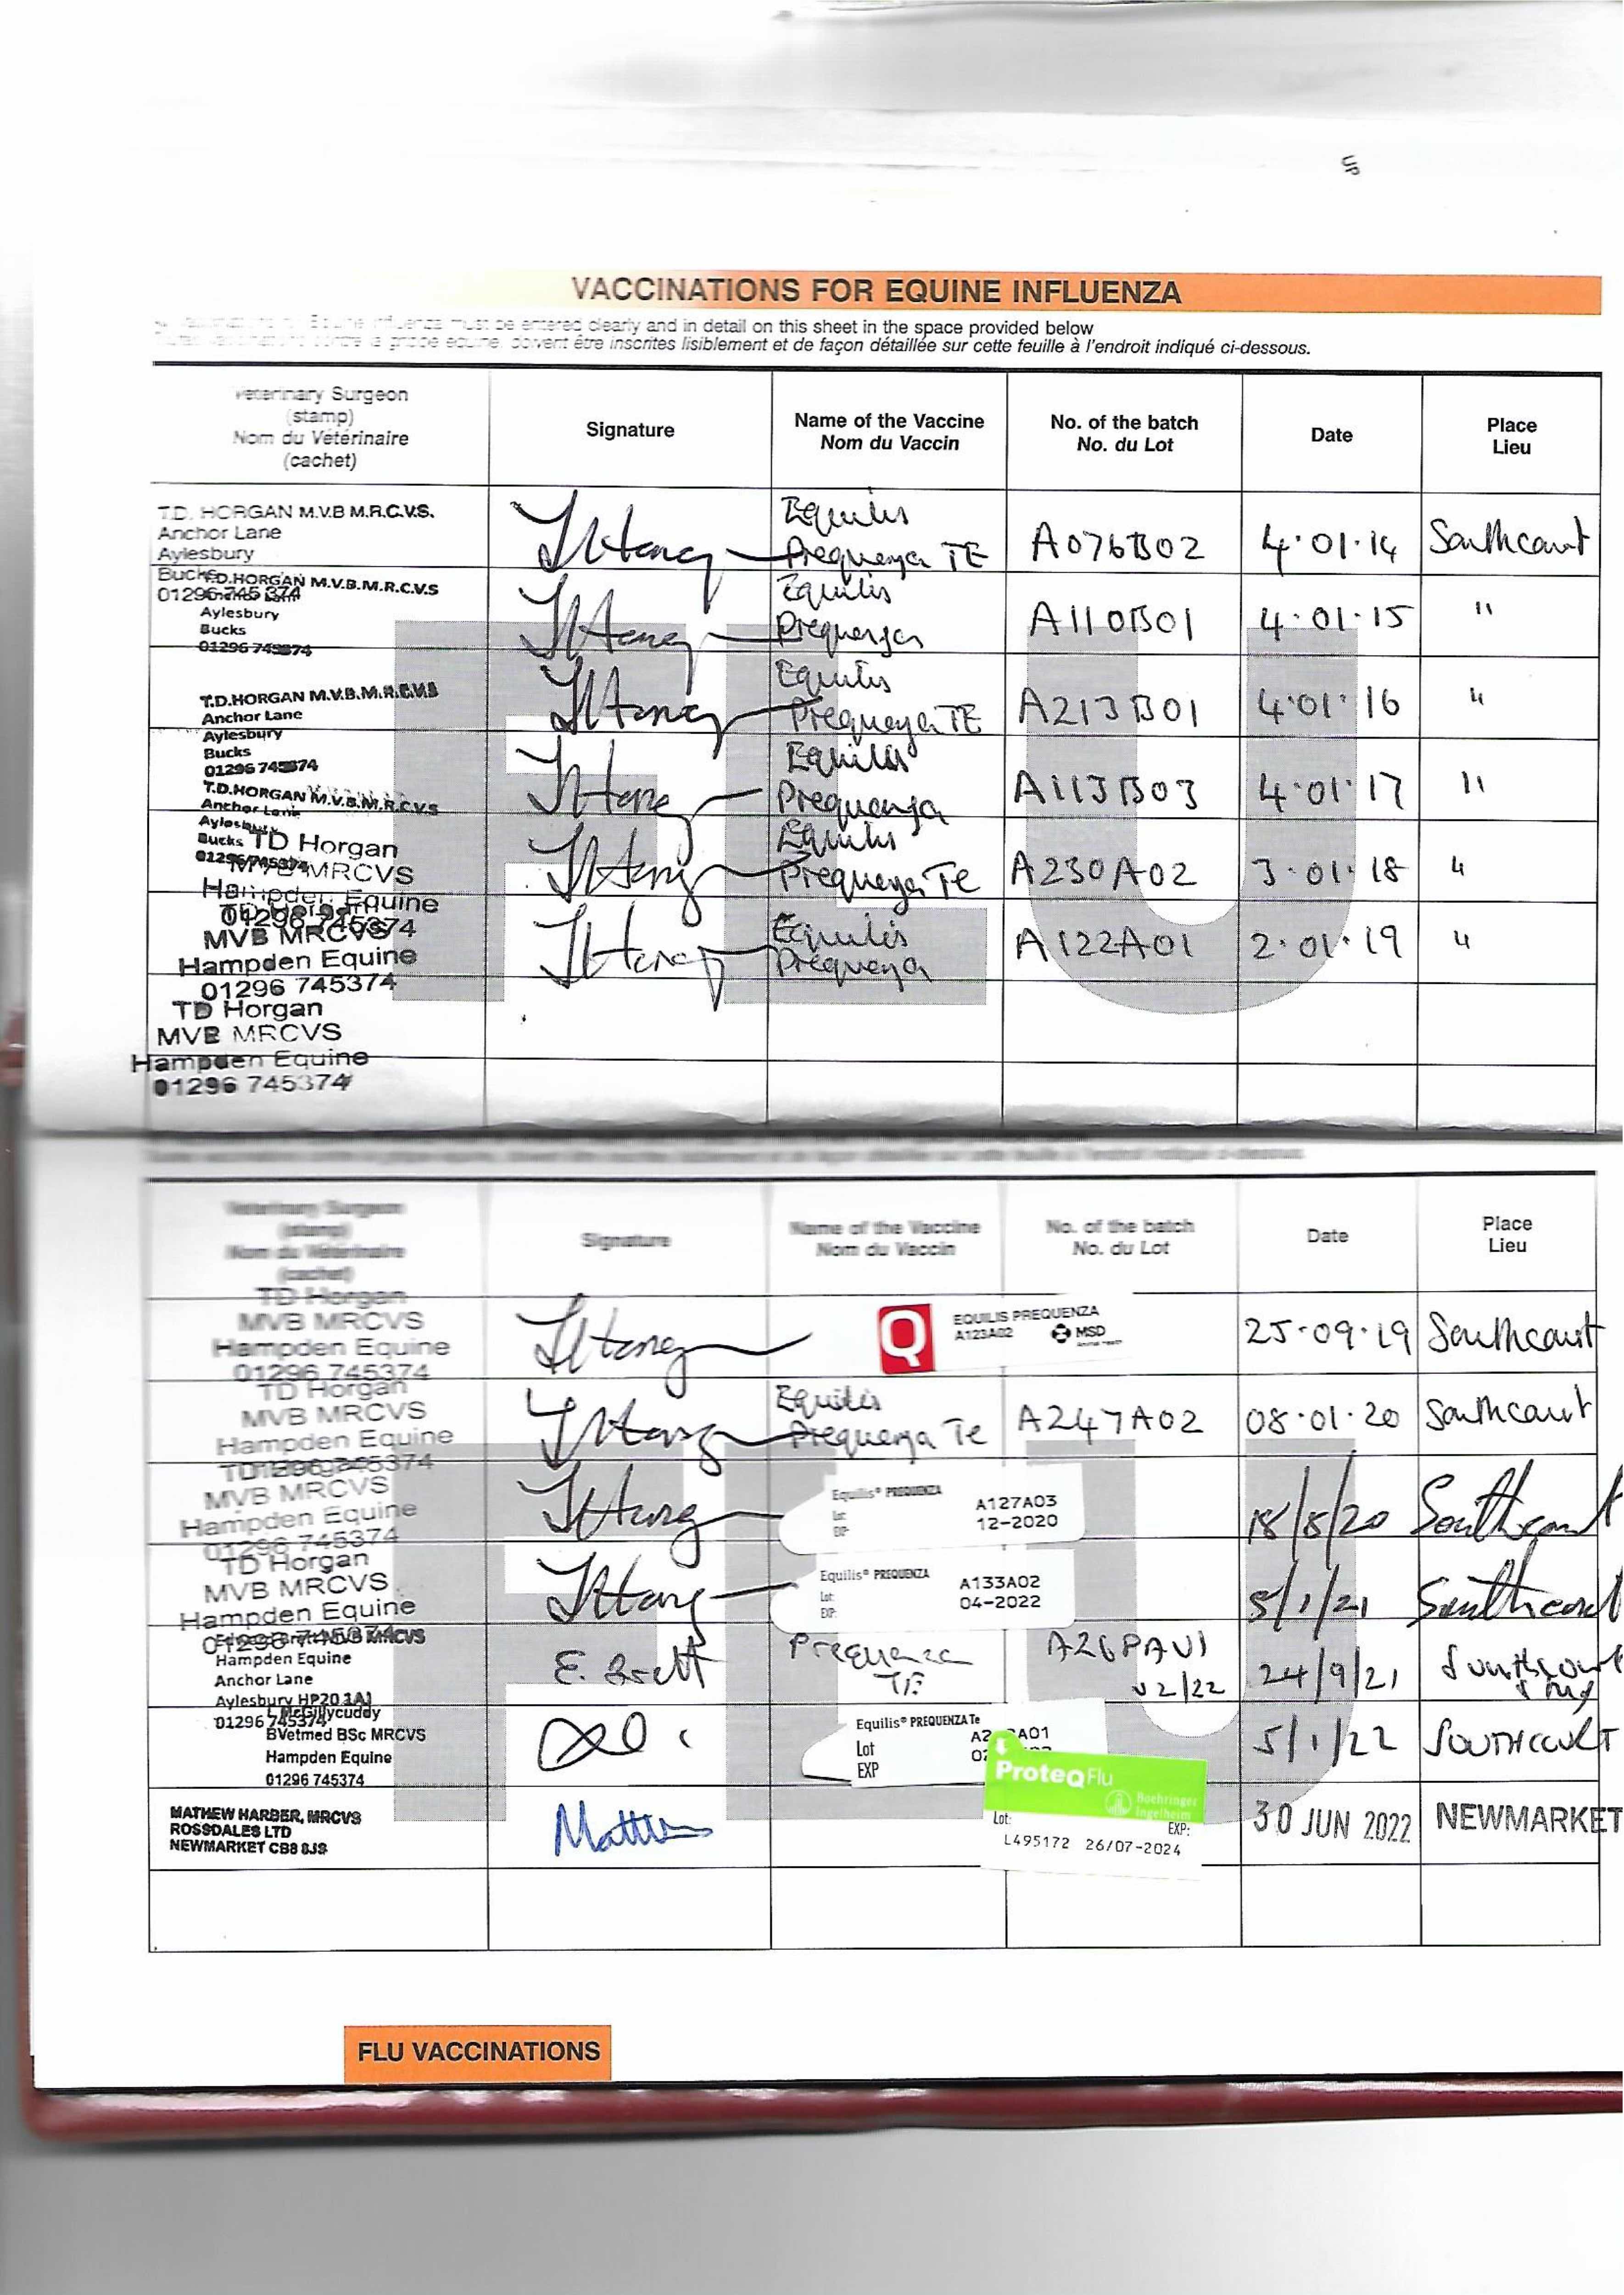 VACCINATIONS FOR EQUINE INFLUENZA
must be entered clearly and in detail on this sheet in the space provided below
doivent être inscrites lisiblement et de façon détaillée sur cette feuille à l'endroit indiqué ci-dessous.
Veterinary Surgeon
(stamp)
Nom du Vétérinaire
(cachet)
Signature
Name of the Vaccine
Nom du Vaccin
No. of the batch
No. du Lot
Date
Place
Lieu
T.D. HORGAN M.V.B M.R.C.V.S.
Anchor Lane
Aylesbury
Bucks
01296 745 374
Equilis
Prequenza TE
A076B02
4·01·14
Southcourt
T.D.HORGAN M.V.B.M.R.C.V.S
Aylesbury
Bucks
01296 745374
Equilis
Prequenza
A110B01
4·01·15
"
T.D.HORGAN M.V.B.M.R.C.V.S
Anchor Lane
Aylesbury
Bucks
01296 745374
Equilis
Prequenza TE
A213B01
4·01·16
"
T.D.HORGAN M.V.B.M.R.C.V.S
Anchor Lane
Aylesbury
Bucks
01296 745374
Equilis
Prequenza
A113B03
4·01·17
"
TD Horgan
MVB MRCVS
Hampden Equine
01296 745374
Equilis
Prequenza Te
A230A02
3·01·18
"
MVB MRCVS
Hampden Equine
01296 745374
Equilis
Prequenza
A122A01
2·01·19
"
TD Horgan
MVB MRCVS
Hampden Equine
01296 745374
FLU
Veterinary Surgeon
(stamp)
Nom du Vétérinaire
(cachet)
Signature
Name of the Vaccine
Nom du Vaccin
No. of the batch
No. du Lot
Date
Place
Lieu
TD Horgan
MVB MRCVS
Hampden Equine
01296 745374
Q
EQUILIS PREQUENZA
A123A02
MSD
25·09·19
Southcourt
TD Horgan
MVB MRCVS
Hampden Equine
01296 745374
Equilis
Prequenza Te
A247A02
08·01·20
Southcourt
MVB MRCVS
Hampden Equine
01296 745374
Equilis® PREQUENZA
Lot:
EXP:
A127A03
12-2020
18/8/20
Southcourt
TD Horgan
MVB MRCVS
Hampden Equine
Equilis® PREQUENZA
Lot:
EXP:
A133A02
04-2022
5/1/21
Southcourt
Hampden Equine
Anchor Lane
Aylesbury HP20 1AJ
01296 745374
E. Brett
Prequenza
TE
24/9/21
L McGillycuddy
BVetmed BSc MRCVS
Hampden Equine
01296 745374
Equilis® PREQUENZA Te
Lot
EXP
5/1/22
SOUTHCOURT
MATHEW HARBER, MRCVS
ROSSDALES LTD
NEWMARKET CB8 8JS
ProteqFlu
Boehringer
Ingelheim
Lot:
EXP:
L495172 26/07-2024
30 JUN 2022
NEWMARKET
FLU
FLU VACCINATIONS